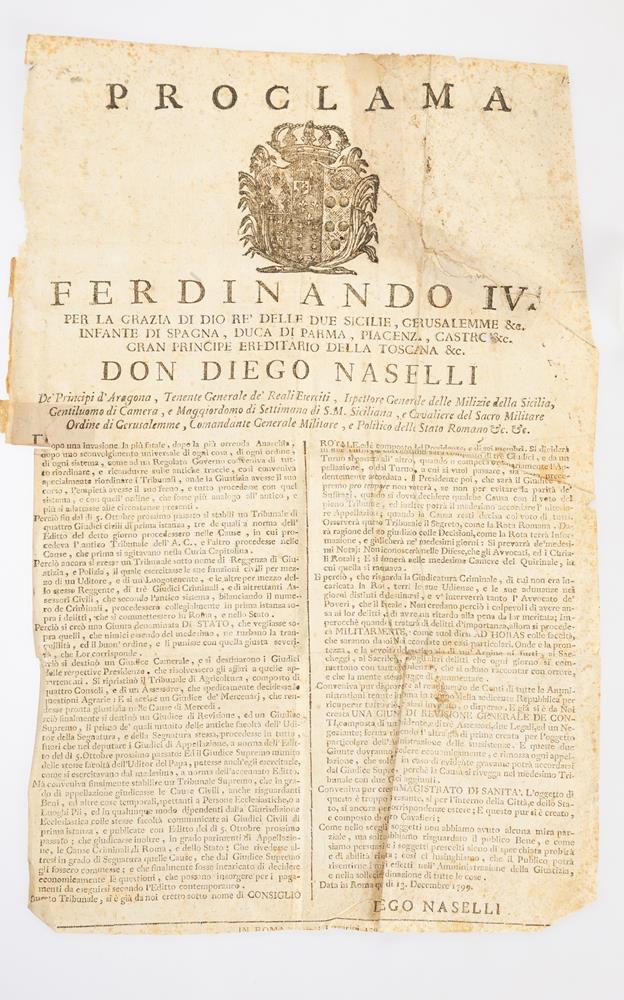 PROCLAMA
FERDINANDO IV.
PER LA GRAZIA DI DIO RE' DELLE DUE SICILIE, GERUSALEMME &c.
INFANTE DI SPAGNA, DUCA DI PARMA, PIACENZ., CASTRO &c.
GRAN PRINCIPE EREDITARIO DELLA TOSCANA &c.
DON DIEGO NASELLI
De' Principi d'Aragona, Tenente Generale de' Reali Eserciti, Ispettore Generale delle Milizie della Sicilia,
Gentiluomo di Camera, e Maggiordomo di Settimana di S.M. Siciliana, e Cavaliere del Sacro Militare
Ordine di Gerusalemme, Comandante Generale Militare, e Politico dello Stato Romano &c. &c.
Dopo una invasione la più fatale, dopo la più orrenda Anarchia,
dopo uno sconvolgimento universale di ogni cosa, di ogni ordine,
di ogni sistema, come ad un Regolato Governo conveniva di tut-
to riordinare, e ricondurre sulle antiche traccie, così conveniva
specialmente riordinare i Tribunali, onde la Giustizia avesse il suo
corso, l'empietà avesse il suo freno, e tutto procedesse con quel
sistema, e con quell'ordine, che fosse più analogo all'antico, e
più si adattasse alle circostanze presenti.
Perciò fin dal dì 5. Ottobre prossimo passato si stabilì un Tribunale di
quattro Giudici Civili di prima istanza, tre de quali a norma dell'
Editto del detto giorno procedessero nelle Cause, in cui pro-
cedeva l'antico Tribunale dell'A.C., e l'altro procedesse nelle
Cause, che prima si agitavano nella Curia Capitolina.
Perciò ancora si eresse un Tribunale sotto nome di Reggenza di Giu-
stizia, e Polizia, il quale esercitasse le sue funzioni civili per mez-
zo di un Uditore, e di un Luogotenente, e le altre per mezzo del-
lo stesso Reggente, di trè Giudici Criminali, e di altrettanti As-
sessori Civili, che secondo l'antico sistema, bilanciando il nume-
ro de Criminali, procedessero collegialmente in prima istanza so-
pra i delitti, che si commettessero in Roma, e nello Stato.
Perciò si creò una Giunta denominata DI STATO, che vegliasse so-
pra quelli, che nimici essendo del medesimo, ne turbano la tran-
quillità, ed il buon'ordine, e li punisse con quella giusta severi-
tà, che Lor corrisponde.
Perciò si destinò un Giudice Camerale, e si destinarono i Giudici
delle respettive Presidenze, che risolvessero gli affari a quelle ap-
partenenti. Si ripristinò il Tribunale di Agricoltura, composto di
quattro Consoli, e di un Assessore, che speditamente decidesse le
questioni Agrarie; E si eresse un Giudice de' Mercenarj, che ren-
desse pronta giustizia nelle Cause di Mercedi.
Perciò finalmente si destinò un Giudice di Revisione, ed un Giudice
Supremo, il primo de' quali munito delle antiche facoltà dell'Udi-
tor della Segnatura, e della Segnatura stessa, procedesse in tutto,
fuori che nel deputare i Giudici di Appellazione, a norma dell'Edit-
to del dì 5. Ottobre prossimo passato: Ed il Giudice Supremo munito
delle stesse facoltà dell'Uditor del Papa, potesse anch'egli esercitarle,
come si esercitavano dal medesimo, a norma dell'accennato Editto.
Mà conveniva finalmente stabilire un Tribunale Supremo, che in gra-
do di appellazione giudicasse le Cause Civili, anche risguardanti
Beni, ed altre cose temporali, spettanti a Persone Ecclesiastiche, o
Luoghi Pii, ed in qualunque modo dipendenti dalla Giurisdizione
Ecclesiastica colle stesse facoltà comunicate ai Giudici Civili di
prima istanza, e publicate con Editto del dì 5. Ottobre prossimo
passato; che giudicasse inoltre, in grado parimenti di Appellazio-
ne, le Cause Criminali di Roma, e dello Stato; Che rivedesse al-
tresì in grado di Segnatura quelle Cause, che dal Giudice Supremo
gli fossero commesse; e che finalmente fosse incaricato di decidere
economicamente le questioni, che possano insorgere per i paga-
menti da eseguirsi secondo l'Editto contemporaneo.
Questo Tribunale, si è già da noi eretto sotto nome di CONSIGLIO
ROTALE composto del Presidente, e di sei membri. Si dividerà
in due Turni, ciascuno sarà composto di tre Giudici, e da un
Turno si passerà all'altro, quando o competa ordinariamente l'Ap-
pellazione, o dal Turno, a cui si vuol passare, sia stata prece-
dentemente accordata. Il Presidente poi, che sarà il Giudice Su-
premo pro tempore non voterà, se non per evitare la parità de'
Suffragj, quando si dovrà decidere qualche Causa con il voto del
pieno Tribunale, ed inoltre potrà il medesimo accordare l'ulterio-
re Appellazione, quando la Causa resti decisa col voto di tutti.
Osserverà questo Tribunale il Segreto, come la Rota Romana, Da-
rà ragione del suo giudizio colle Decisioni, come la Rota terrà Infor-
mazione, e giudicherà ne' medesimi giorni: Si prevarrà de' medesi-
mi Notaj: Non riconoscerà nelle Difese, che gli Avvocati, ed i Curia-
li Rotali; E si unirà nelle medesime Camere del Quirinale, in
cui quella si riuniva.
E perciò, che risguarda la Giudicatura Criminale, di cui non era in-
caricata la Rota, terrà le sue Udienze, e le sue adunanze nei
giorni distinti e destinati, e v'interverrà tanto l'Avvocato de'
Poveri, che il Fiscale. Non credano perciò i colpevoli di avere an-
sa ai lor delitti, e di avere un ritardo alla pena da lor meritata; im-
perocchè quando si tratterà di delitti d'importanza, allora si procede-
rà MILITARMENTE, come suol dirsi AD HORAS colle facoltà,
che saranno da noi accordate ne casi particolari. Onde e la pron-
tezza, e la severità
cheggi, ai Sacrilegj, ed agli altri delitti che ogni giorno si com-
mettono con tanta impudenza, che si odono raccontar con orrore,
Conveniva pur disporre al rendimento de Conti di tutte le Ammi-
nistrazioni tenute in tempo della sedicente Republica per
ricuperare tutto ciò o disperso. E già si è da Noi
creata UNA GIUNTA DI REVISIONE GENERALE DE CON-
TI, composta di un Presidente, e di altre Assessori, due Legali, ed un Ne-
goziante; ferma restando l'altra già di prima creata per l'oggetto
particolare dell'Amministrazione delle sussistenze. E queste due
Giunte dovranno procedere economicamente, e rimossa ogni appel-
lazione, che solo in caso di evidente gravame potrà accordarsi
dal Giudice Supremo perchè la Causa si rivegga nel medesimo Tri-
bunale con due Voti aggiunti.
Conveniva pur creare MAGISTRATO DI SANITA'. L'oggetto di
questo è troppo interessante, sì per l'interno della Città, e dello Sta-
to, sì ancora per corrispondenze estere; E questo pur si è creato,
e composto di otto Cavalieri;
Come nello scegliere soggetti non abbiamo avuto alcuna mira par-
ziale, ma soltanto abbiamo risguardato il publico Bene, e come
siamo persuasi che i soggetti prescelti sieno di sperimentata probità
e di abilità rara; così ci lusinghiamo, che il Publico potrà
sentirne i buoni effetti nell'Amministrazione della Giustizia,
e nella sollecita definizione di tutte le cose.
Data in Roma questo dì 13. Decembre 1799.
EGO NASELLI
IN ROMA